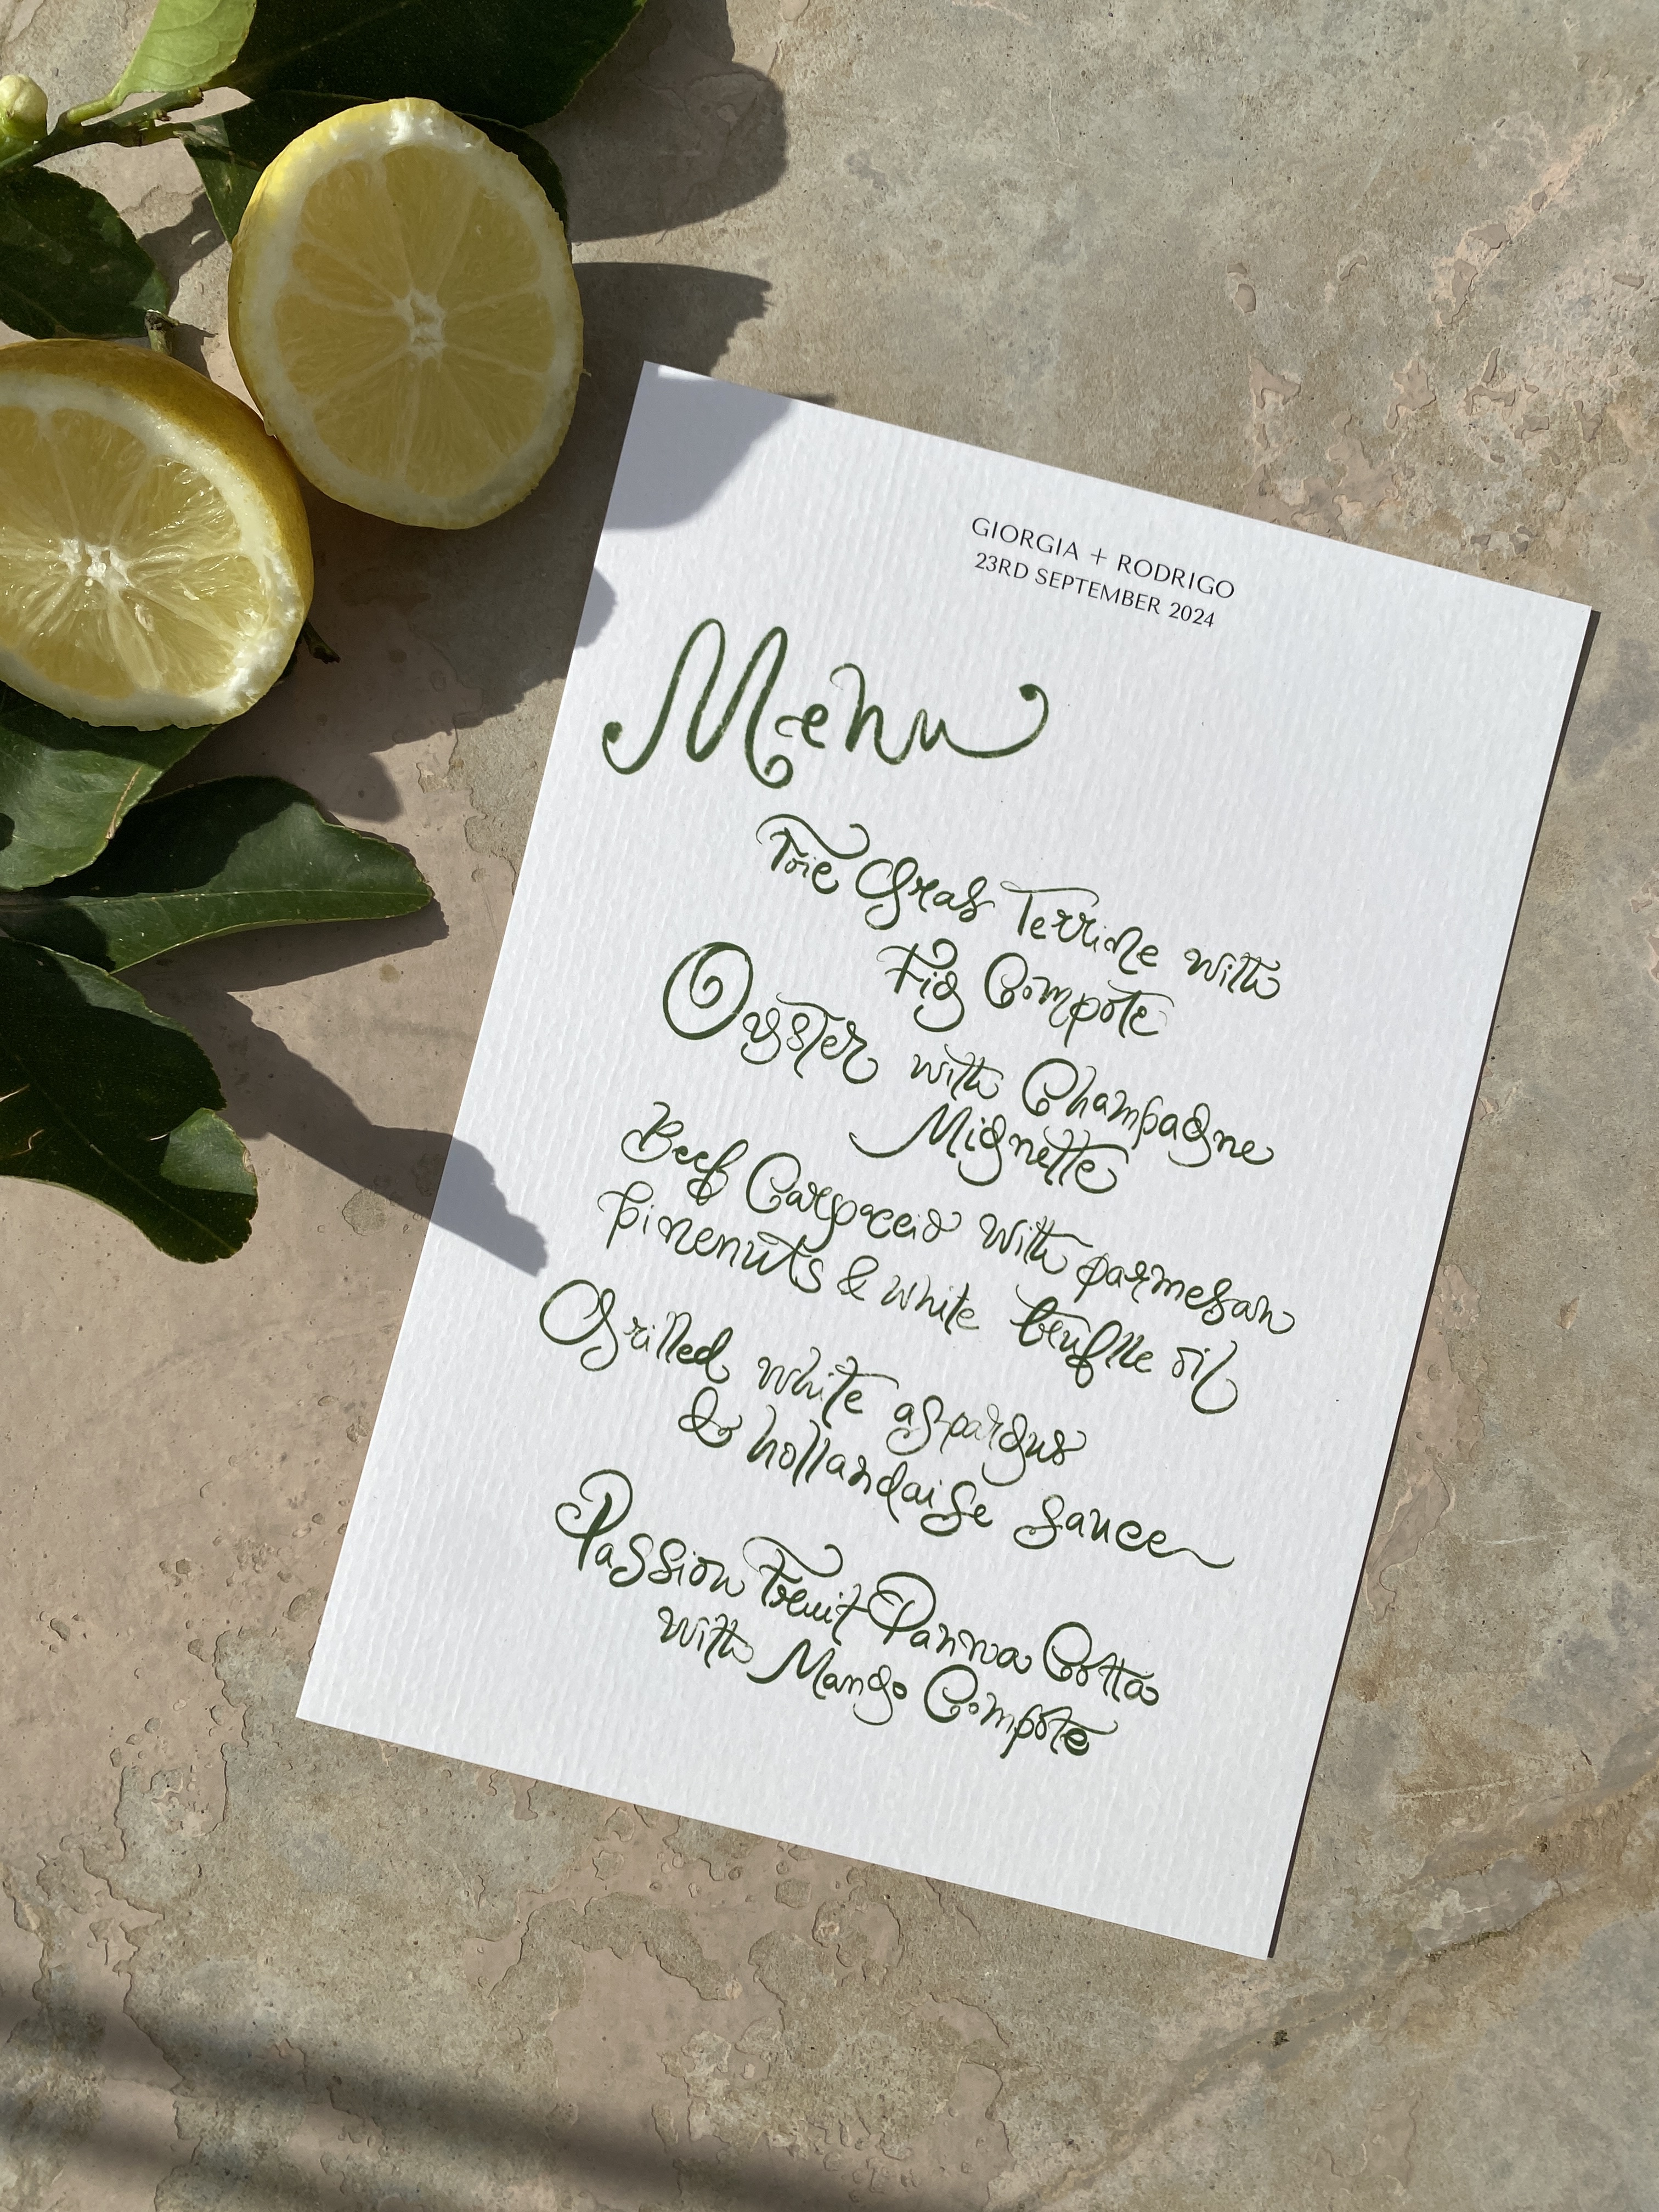 GIORGIA + RODRIGO
23RD SEPTEMBER 2024
Menu
Foie Gras Terrine with
Fig Compote
Oyster with Champagne
Mignette
Beef Carpaccio with parmesan
pinenuts & white truffle oil
Grilled white aspargus
& hollandaise sauce
Passion Fruit Panna Cotta
with Mango Compote